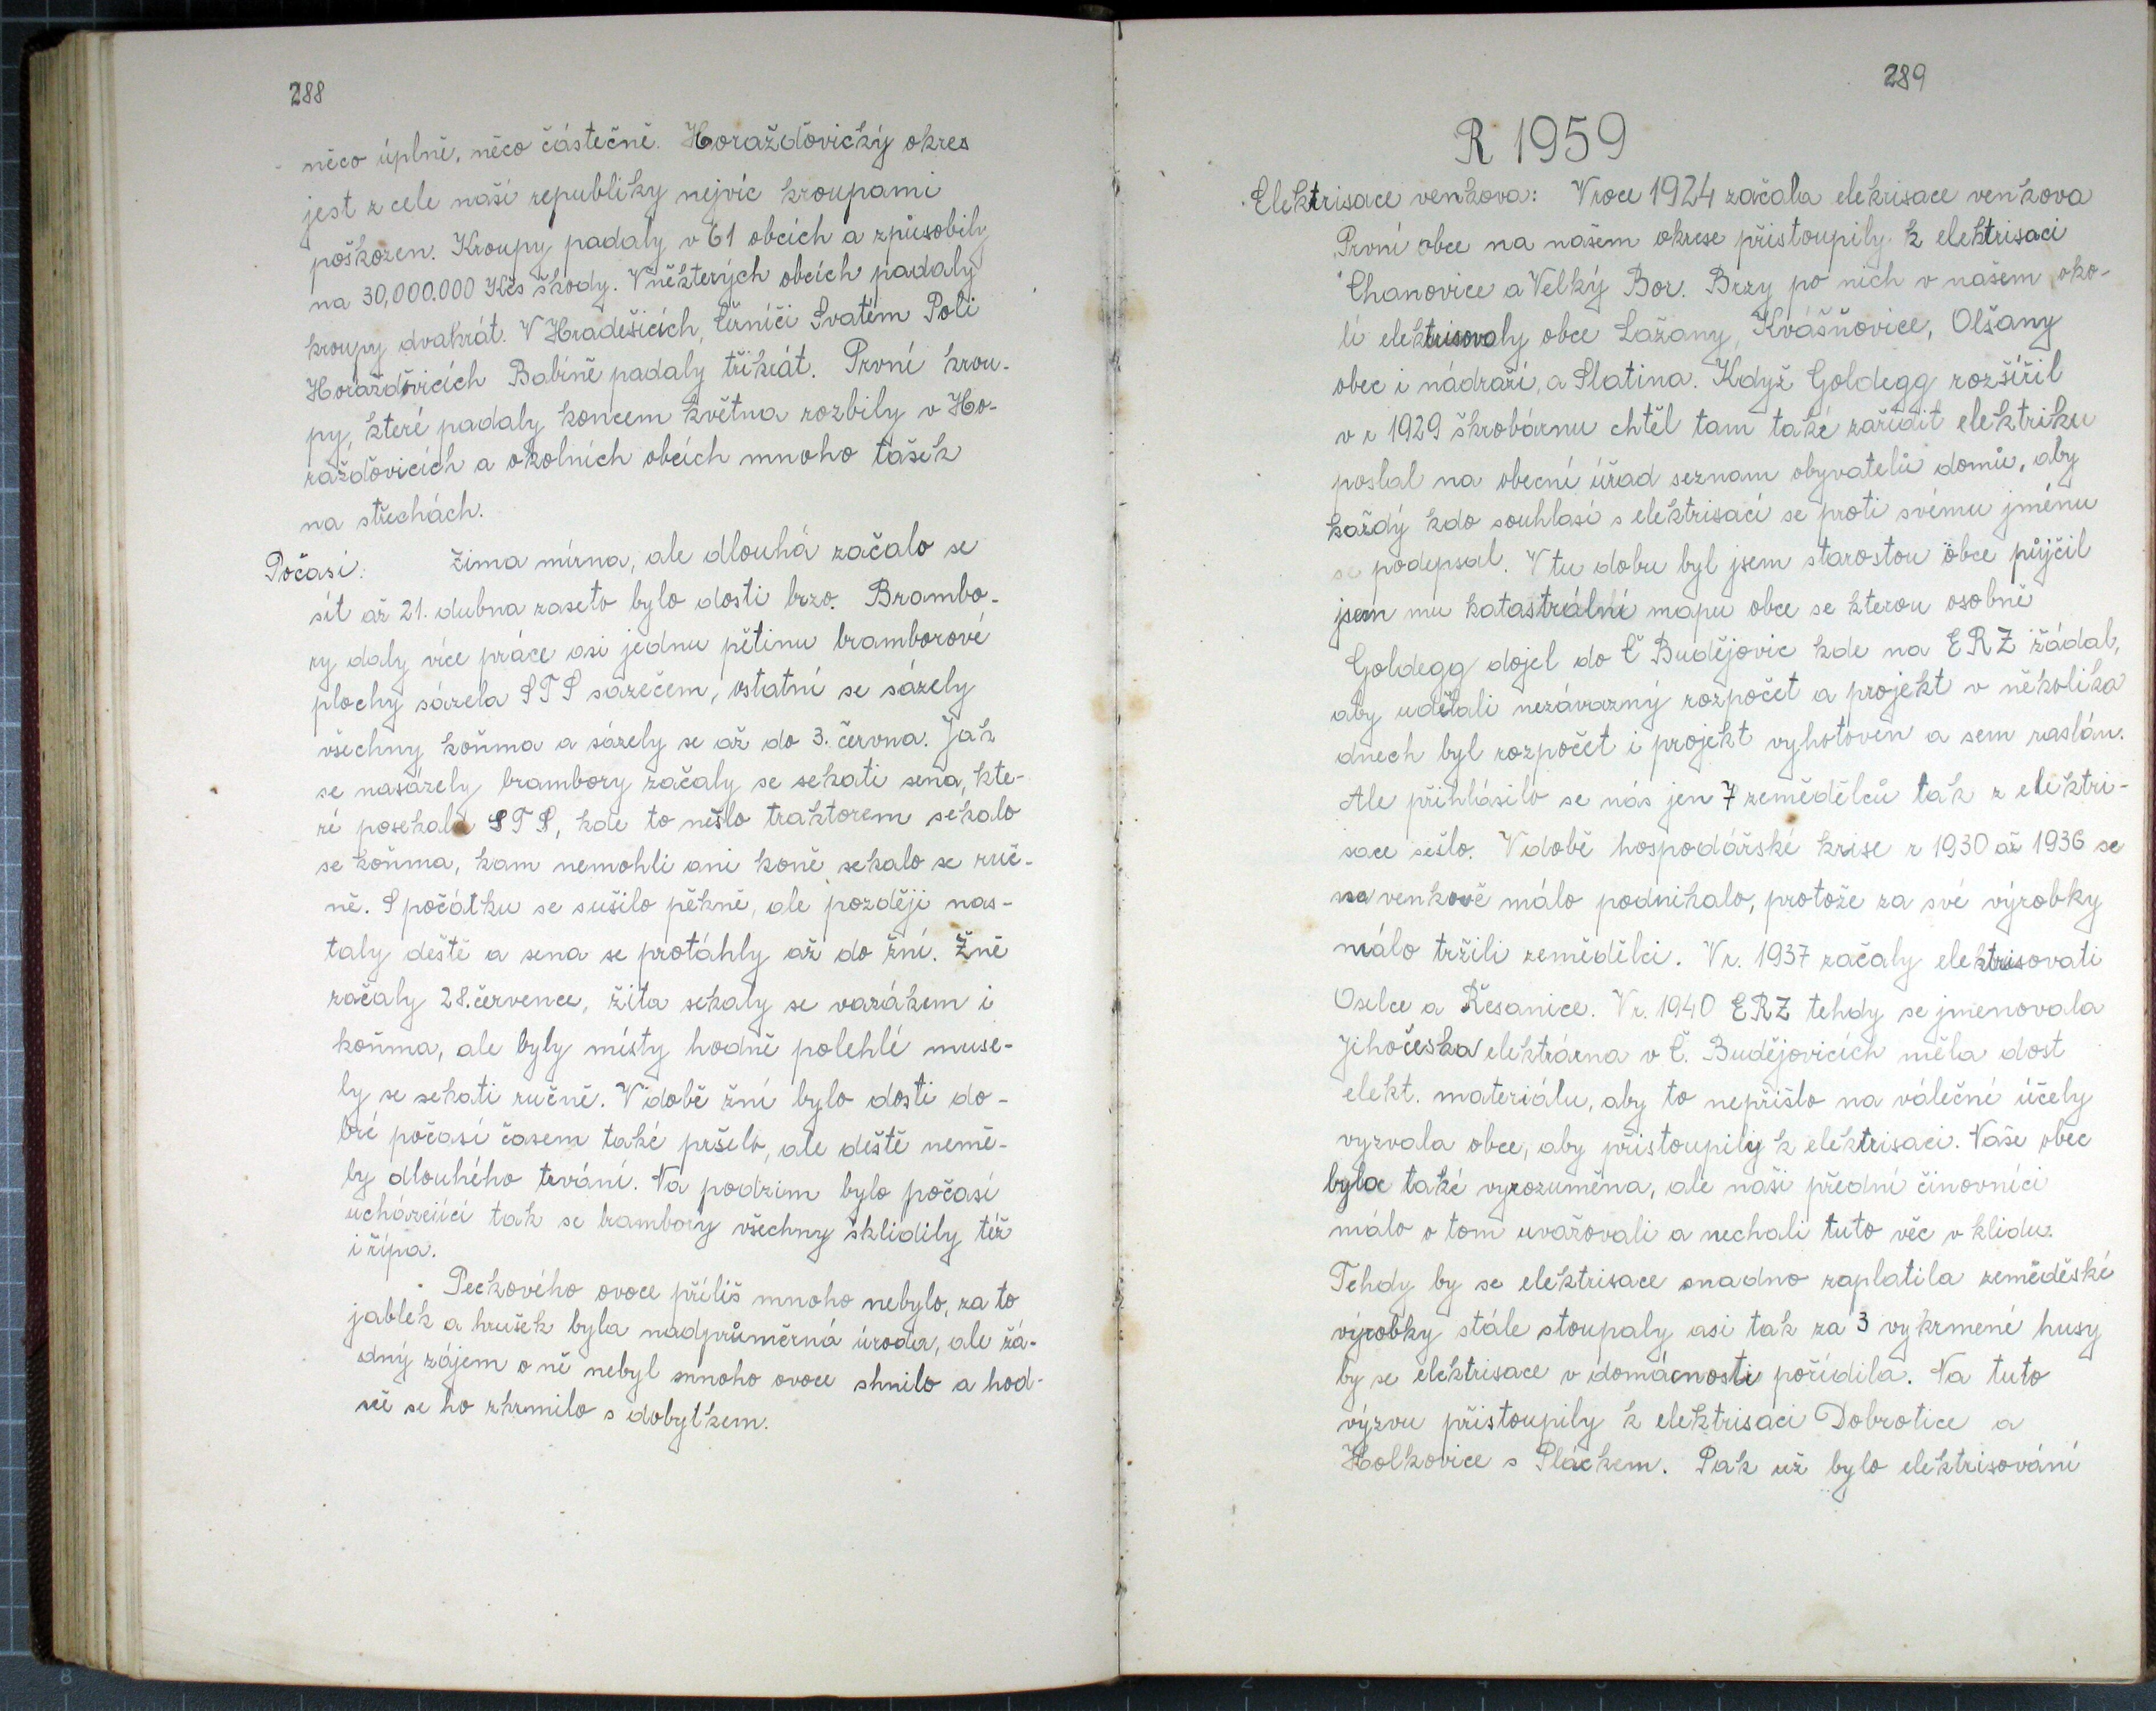 288
něco úplně, něco částečně. Horažďovický okres
jest z cele naší republiky nejvíc kroupami
poškozen. Kroupy padaly v 61 obcích a způsobily
na 30,000.000 Kčs škody. V některých obcích padaly
kroupy dvakrát. V Hradešicích, Černíči Svatém Poli
Horažďovicích Babíně padaly třikrát. První krou-
py, které padaly koncem května rozbily v Ho-
ražďovicích a okolních obcích mnoho tašek
na střechách.
Počasí: Zima mírna, ale dlouhá začalo se
sít až 21. dubna zaseto bylo dosti brzo. Brambo-
ry daly více práce asi jednu pětinu bramborové
plochy sázela STS sazečem, ostatní se sázely
všechny koňma a sázely se až do 3. června. Jak
se nasázely brambory začaly se sekati sena, kte-
ré posekala STS, kde to nešlo traktorem sekalo
se koňma, kam nemohli ani koně sekalo se ruč-
ně. S počátku se sušilo pěkně, ale později nas-
taly deště a sena se protáhly až do žní. Žně
začaly 28. července, žita sekaly se vazákem i
koňma, ale byly místy hodně polehlé muse-
ly se sekati ručně. V době žní bylo dosti do-
bré počasí časem také pršelo, ale deště nemě-
ly dlouhého trvání. Na podzim bylo počasí
ucházející tak se brambory všechny sklidily též
i řípa.
Peckového ovoce příliš mnoho nebylo, za to
jablek a hrušek byla nadprůměrná úroda, ale žá-
dný zájem o ně nebyl mnoho ovoce shnilo a hod-
ně se ho zkrmilo s dobytkem.
289
R 1959
Elektrisace venkova: V roce 1924 začala elekrisace venkova
První obce na našem okrese přistoupily k elektrisaci
Chanovice a Velký Bor. Brzy po nich v našem oko-
lí elektrisovaly obce Lažany, Kvášňovice, Olšany
obec i nádraží, a Slatina. Když Goldegg rozšířil
v r 1929 škrobárnu chtěl tam také zařídit elektriku
poslal na obecní úřad seznam obyvatelů domů, aby
každý kdo souhlasí s elektrisací se proti svému jménu
se podepsal. V tu dobu byl jsem starostou obce půjčil
jsem mu katastrální mapu obce se kterou osobně
Goldegg dojel do Č Budějovic kde na ERZ žádal,
aby udělali nezávazný rozpočet a projekt v několika
dnech byl rozpočet i projekt vyhotoven a sem zaslán.
Ale přihlásilo se nás jen 7 zemědělců tak z elektri-
sace sešlo. V době hospodářské krise r 1930 až 1936 se
na venkově málo podnikalo, protože za své výrobky
málo tržili zemědělci. V r. 1937 začaly elektrisovati
Oselce a Řesanice. V r. 1940 ERZ tehdy se jmenovala
Jihočeska elektrárna v Č. Budějovicích měla dost
elekt. materiálu, aby to nepřišlo na válečné účely
vyzvala obce, aby přistoupily k elektrisaci. Naše obec
byla také vyrozuměna, ale naši přední činovníci
málo o tom uvažovali a nechali tuto věc v klidu.
Tehdy by se elektrisace snadno zaplatila zeměděské
výrobky stále stoupaly asi tak za 3 vykrmené husy
by se elektrisace v domácnosti pořídila. Na tuto
výzvu přistoupily k elektrisaci Dobrotice a
Holkovice s Pláckem. Pak už bylo elektrisování